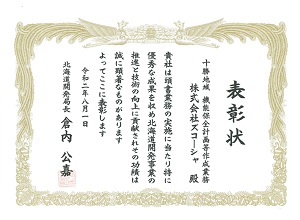 表彰状
十勝地域 機能保全計画等作成業務
株式会社ズコーシャ 殿
貴社は頭書業務の実施に当たり特に
優秀な成果を収め北海道開発事業の
推進と技術の向上に貢献されその功績は
誠に顕著なものがあります
よってここに表彰します
令和二年八月一日
北海道開発局長 倉内 公嘉